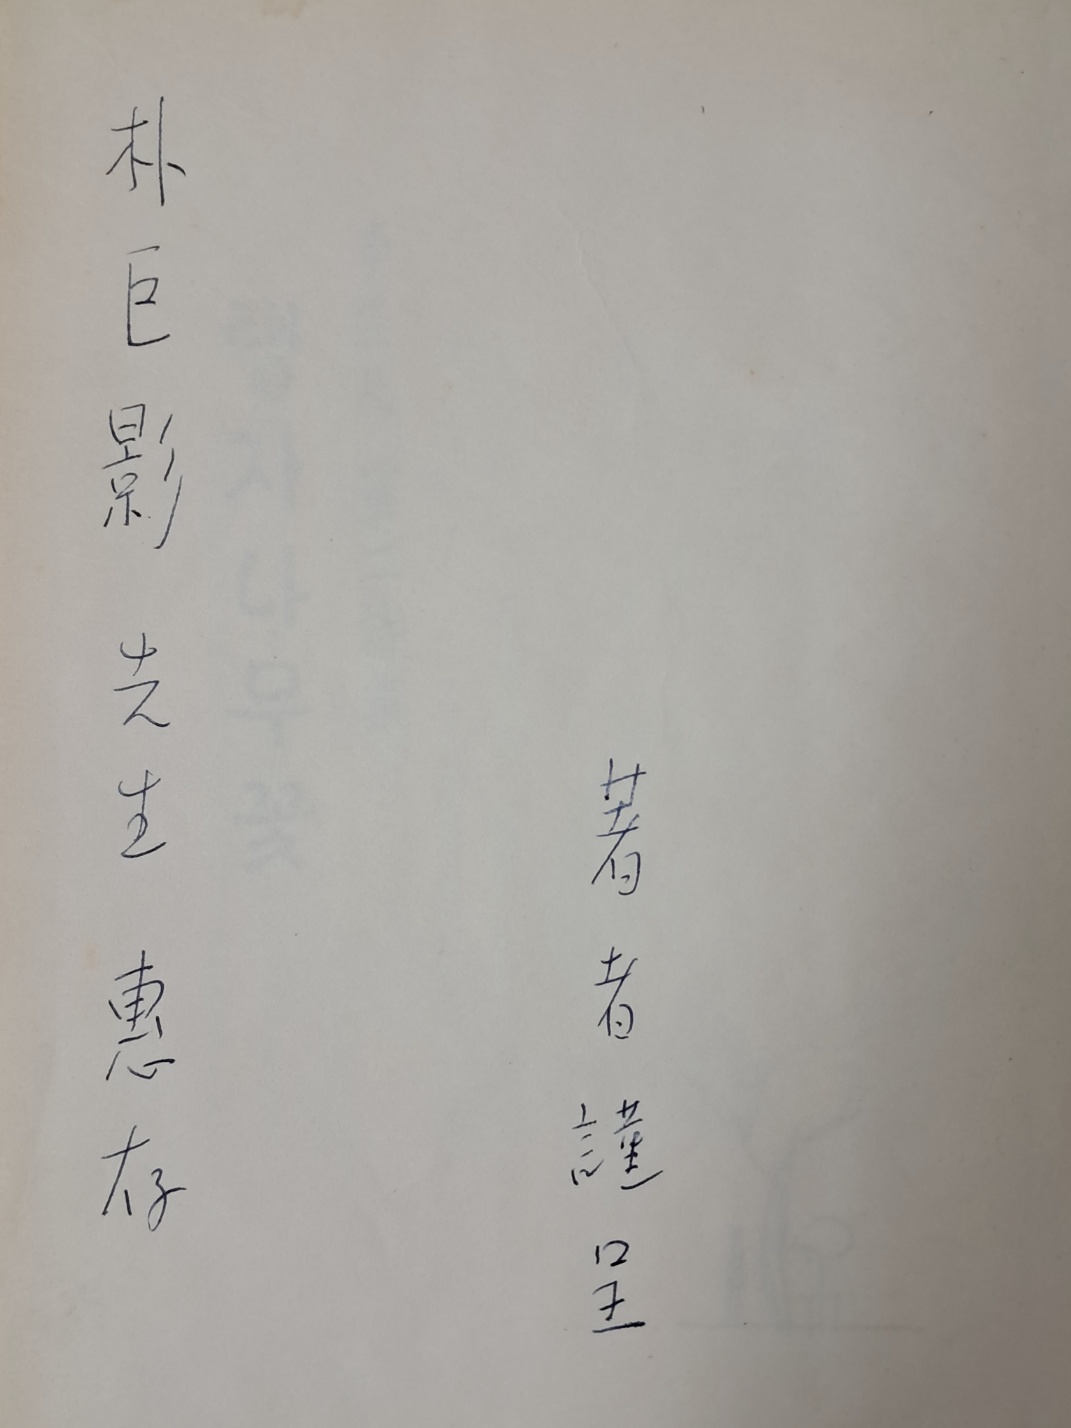 朴巨影 先生 惠存
著者謹呈